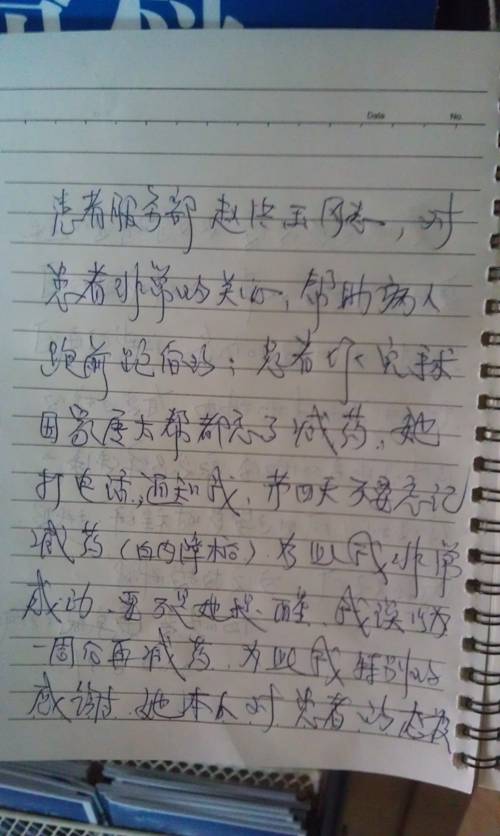 Date No.
患者服务部赵洪玉同志,对
患者非常的关心,帮助病人
跑前跑后的;患者作完手术
因家属太帮都忘了减药,她
打电话,通知我,节四天不要忘记
减药(白内障术后)为此我非常
感动,要不是她提醒,我误以为
一周后再减药,为此我特别的
感谢,她本人对患者的态度